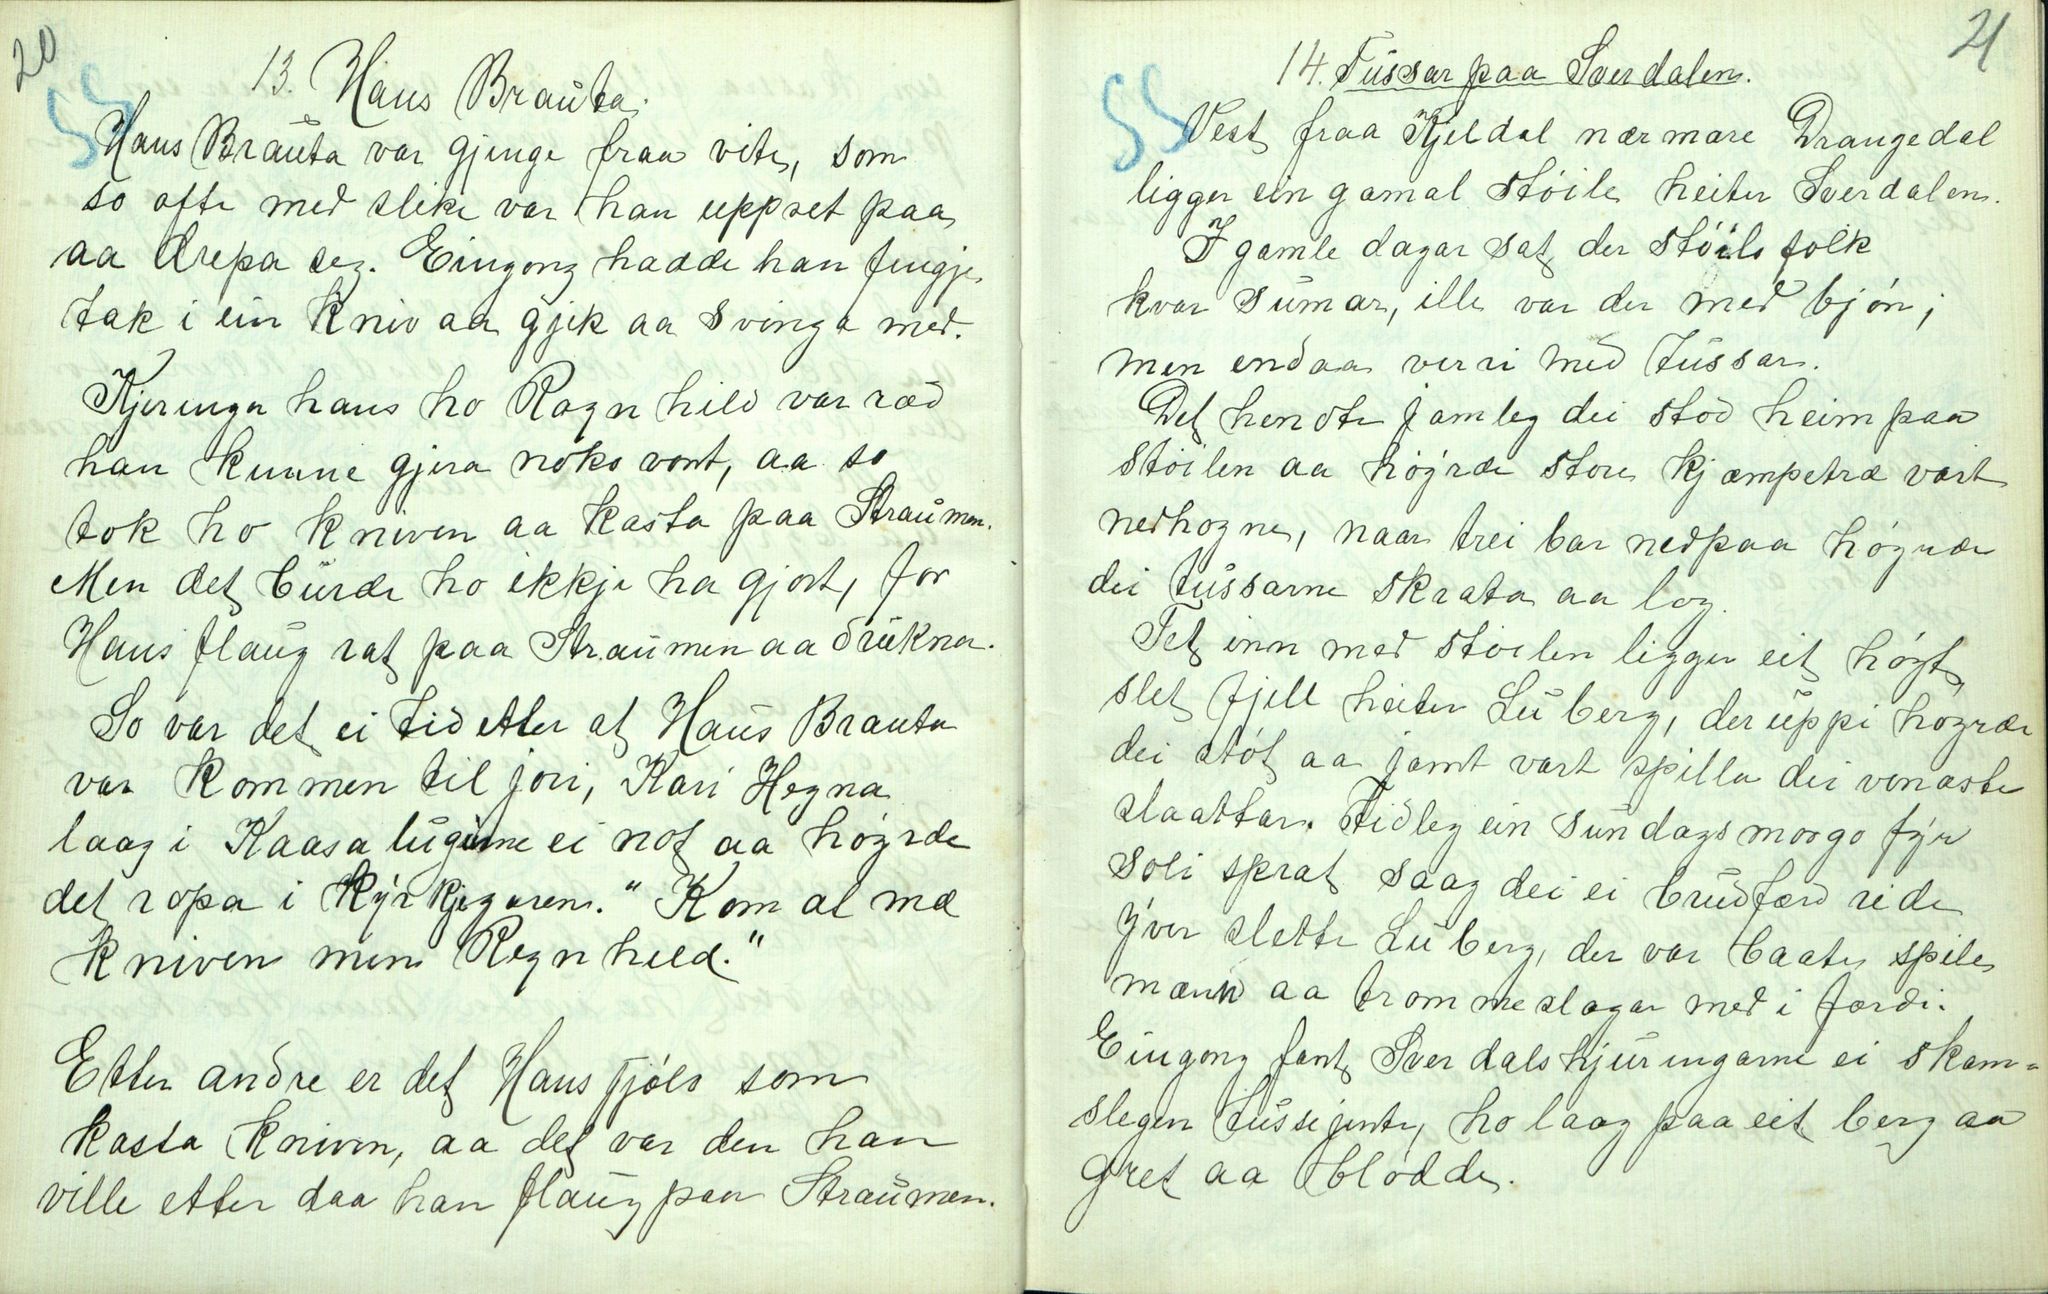 20
13. Hans Brauta.
SS
Hans Brauta var gjenge fraa vite, som
so ofte med slike var han uppset paa
aa drepa seg. Eingong hadde han fengje
tak i ein kniv aa gjek aa svinga med.
Kjeringa hans ho Ragnhild var ræd
han kunne gjera noko vont, aa so
tok ho kniven aa kasta paa Straumen.
Men det burde ho ikkje ha gjort, for
Hans flaug rat paa Straumen aa drukna.
So var det ei tid etter at Hans Brauta
var kommen til jori, Kari Hegna
laag i Kaasa lugume ei not aa høgrde
det ropa i kyrkjegaren. "Kom at mæ
kniven min Regnhild."
Etter andre er det Hans Tjøls som
kasta kniven, aa det var den han
ville etter daa han flaug paa Straumen.
21
14. Tussar paa Sverdalen.
SS
Vest fraa Kjeldal nærmare Drangedal
ligger ein gamal støile heiter Sverdalen.
I gamle dagar sat der støilsfolk
kvar sumar, ille var der med bjøn,
men endaa verri med tussar.
Det hendte jamleg dei stod heim paa
støilen aa høgrde store kjæmpetræ vart
nedhogne, naar trei bar nedpaa høgrde
dei tussarne skrata aa log.
Tet inn med støilen ligger eit høgt,
slet fjell heiter Luberg, der uppi høgrde
dei støt aa jamt vart spilla dei venaste
slaattar. Tidleg ein sundagsmorgo fyr
soli sprat saag dei ei brudfærd ride
yver slette Luberg, der var baate spele
mænn aa trommeslagar med i færdi.
Eingong fant Sverdalskjeringarne ei skam-
slegen tussejente, ho laag paa eit berg aa
gret aa blødde.